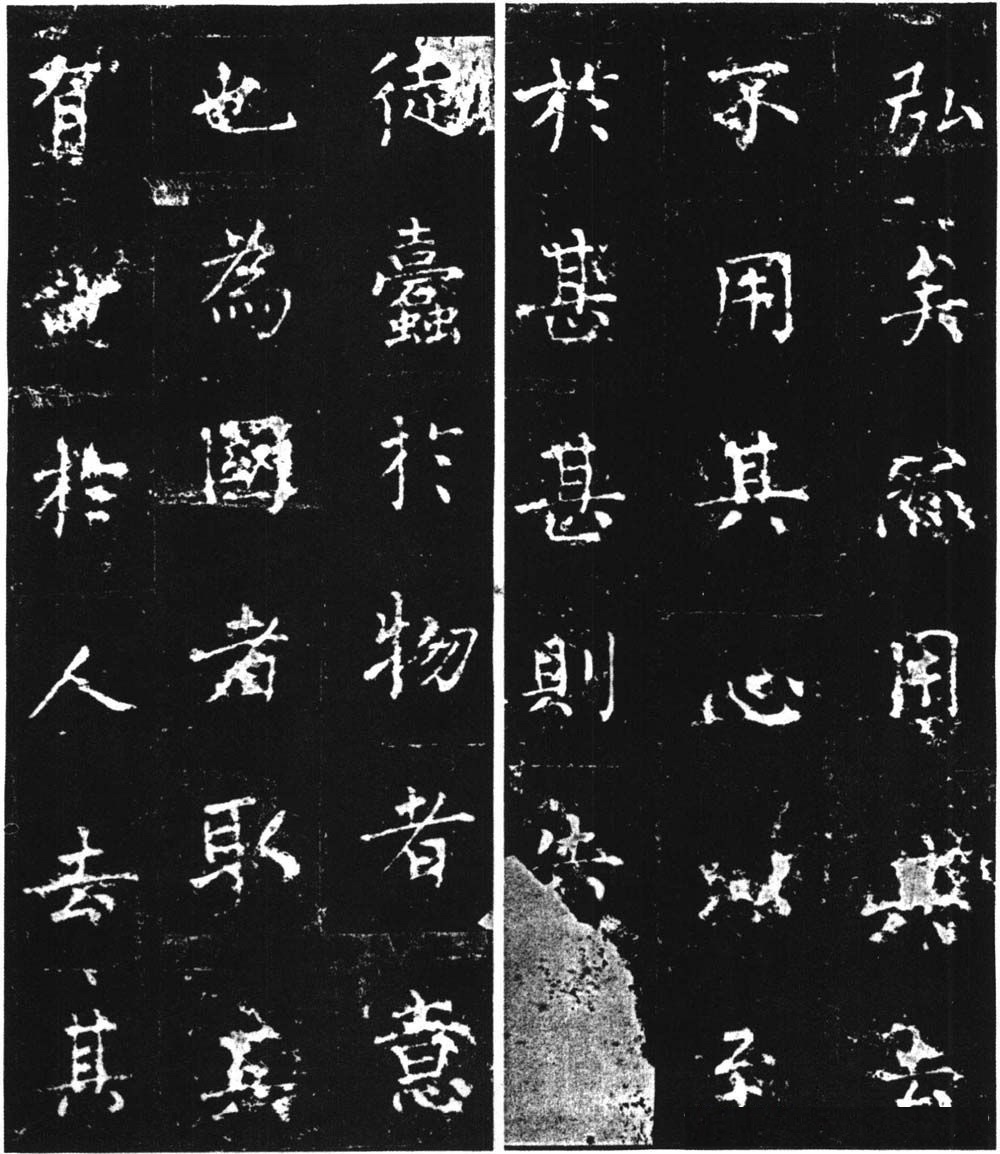 弘矣用與去
不用其心以至
於甚甚則失
徒蠹於物者意
也為國者取其
有於人去其